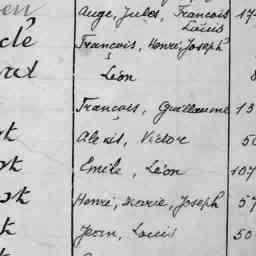 Auge, Jules, François 17
Louis
clé François, Henri, Joseph
Léon 8
François, Guillaume 13
Alexis, Victor 50
Emile, Léon 107
Henri, Marie, Joseph 57
Jean, Louis 50